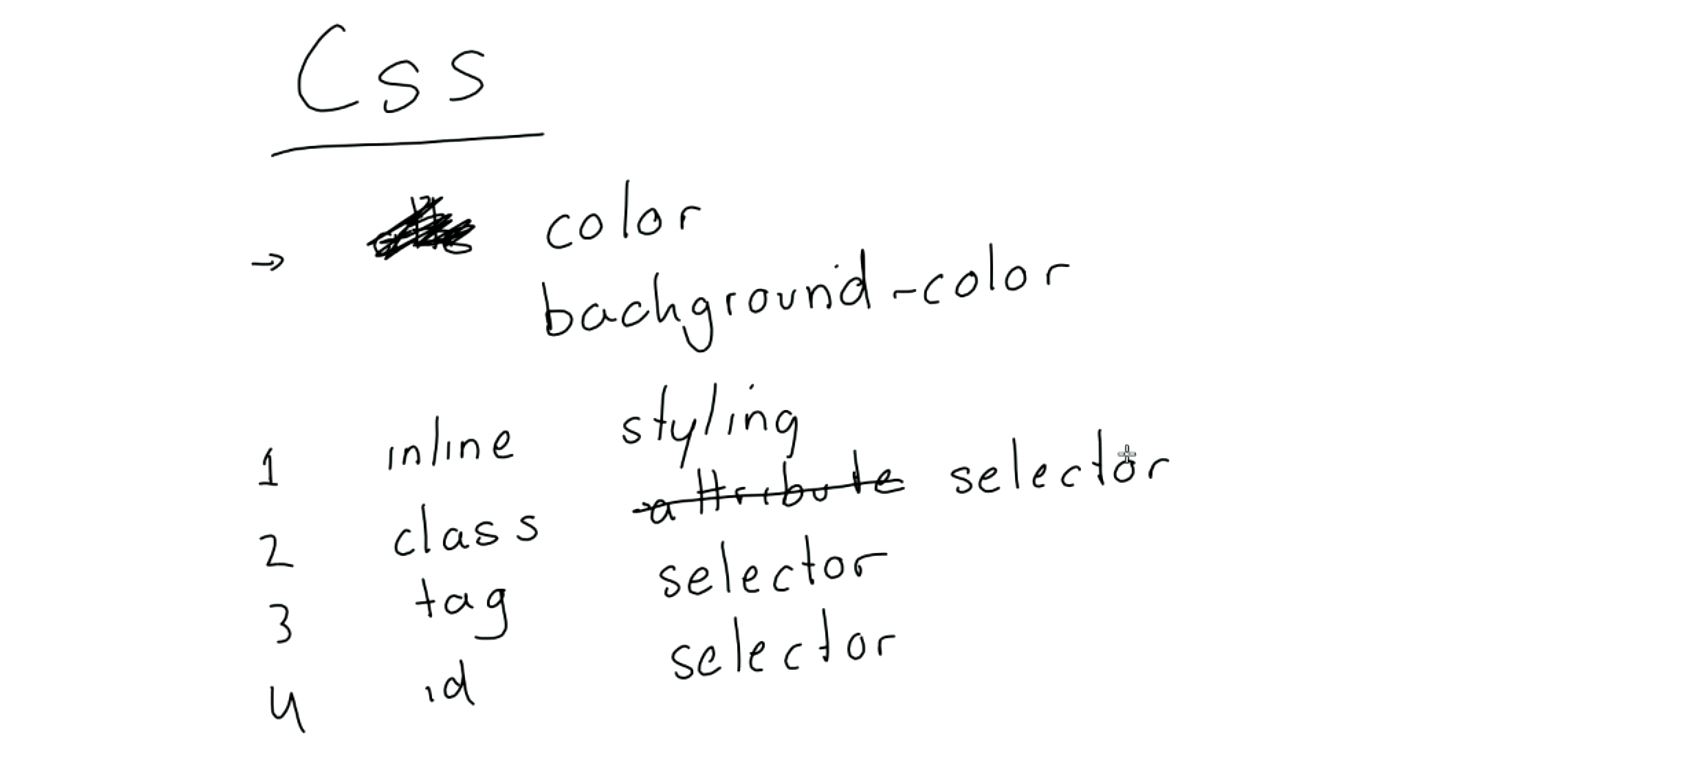 Css
→ color
background-color
1 inline styling
2 class attribute selector
3 tag selector
4 id selector